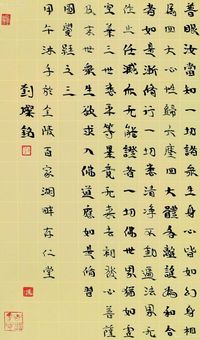 普眼汝當知一切諸眾生身心皆如幻身相
屬四大心性歸六塵四大體各離誰為和合
者如是漸修行一切悉清淨不動遍法界無
作止任滅亦無能證者一切佛世界猶如虛
空華三世悉平等畢竟無來去初發心菩薩
及末世眾生欲求入佛道應如是修習
圓覺經之三
甲午沐手於金陵百家湖畔存仁堂
劉燦銘